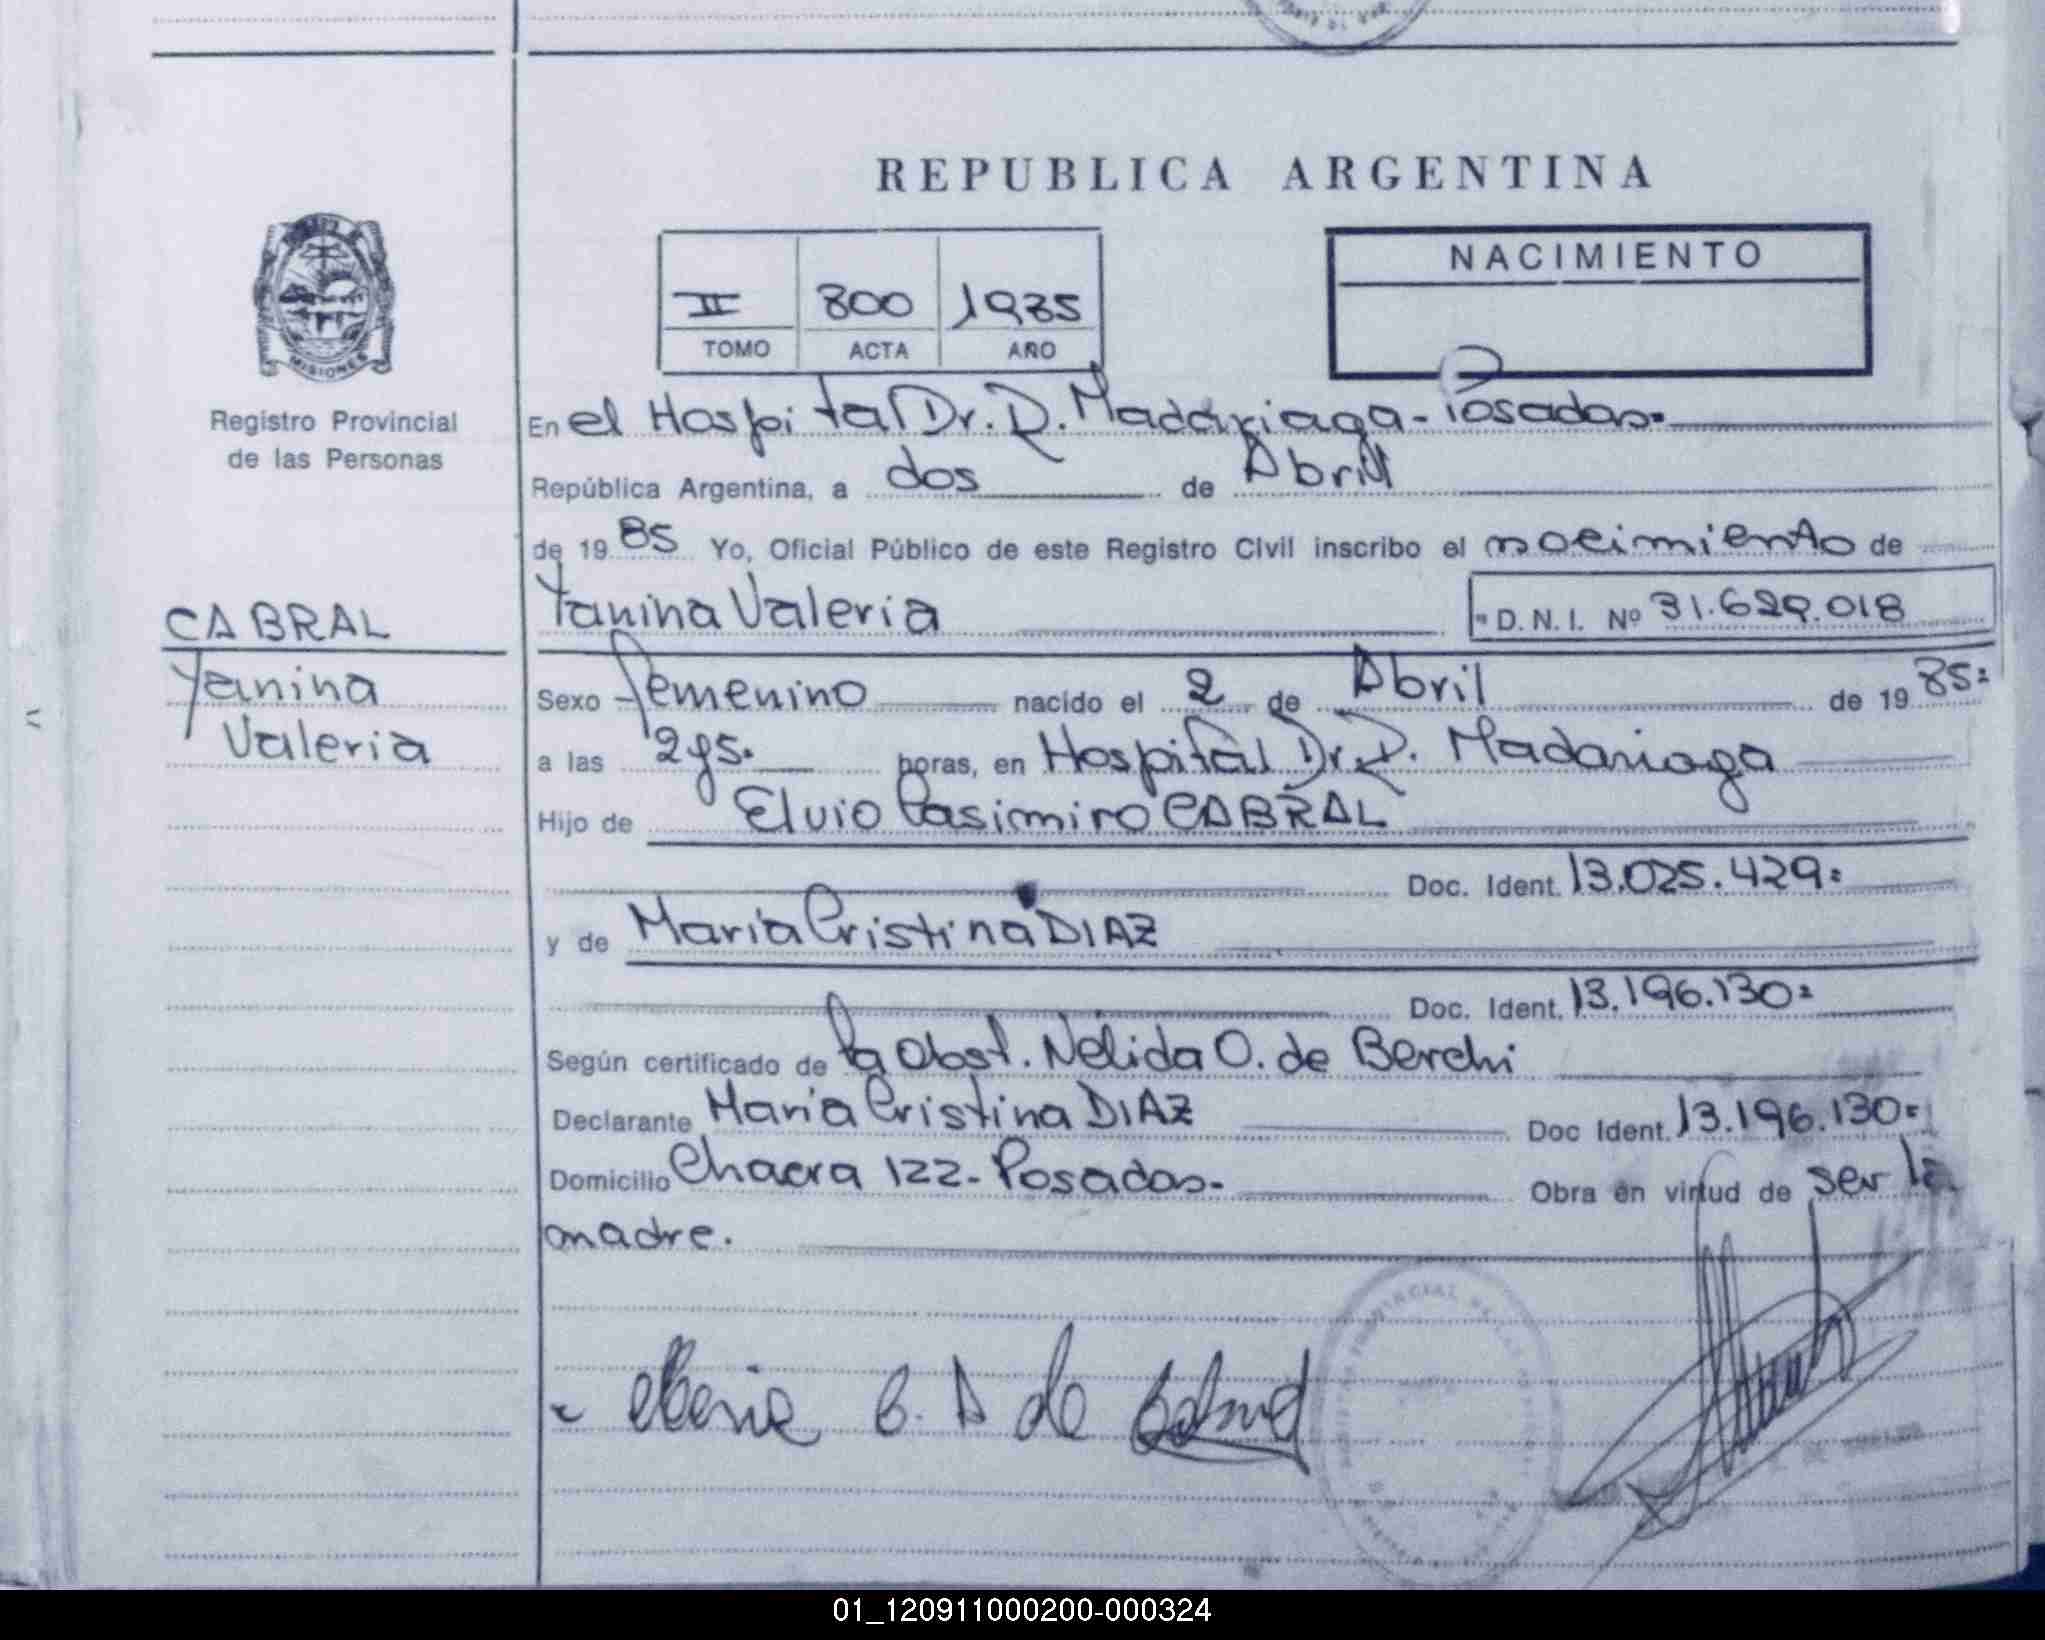 REPUBLICA ARGENTINA
NACIMIENTO
II 800 1985
TOMO ACTA AÑO
MISIONES
Registro Provincial
de las Personas
En el Hospital Dr. R. Madariaga - Posadas.
República Argentina, a dos de Abril
de 1985 Yo, Oficial Público de este Registro Civil inscribo el nacimiento de
Yanina Valeria
D. N. I. Nº 31.629.018
CABRAL
Yanina
Valeria
Sexo femenino nacido el 2 de Abril de 1985=
a las 2 y 5. horas, en Hospital Dr. R. Madariaga
Hijo de Elvio Casimiro CABRAL
Doc. Ident. 13.025.429=
y de María Cristina DIAZ
Doc. Ident. 13.196.130=
Según certificado de la Obst. Nélida O. de Berchi
Declarante María Cristina DIAZ Doc Ident. 13.196.130=
Domicilio Chacra 122 - Posadas - Obra en virtud de ser la
madre.
01_120911000200-000324